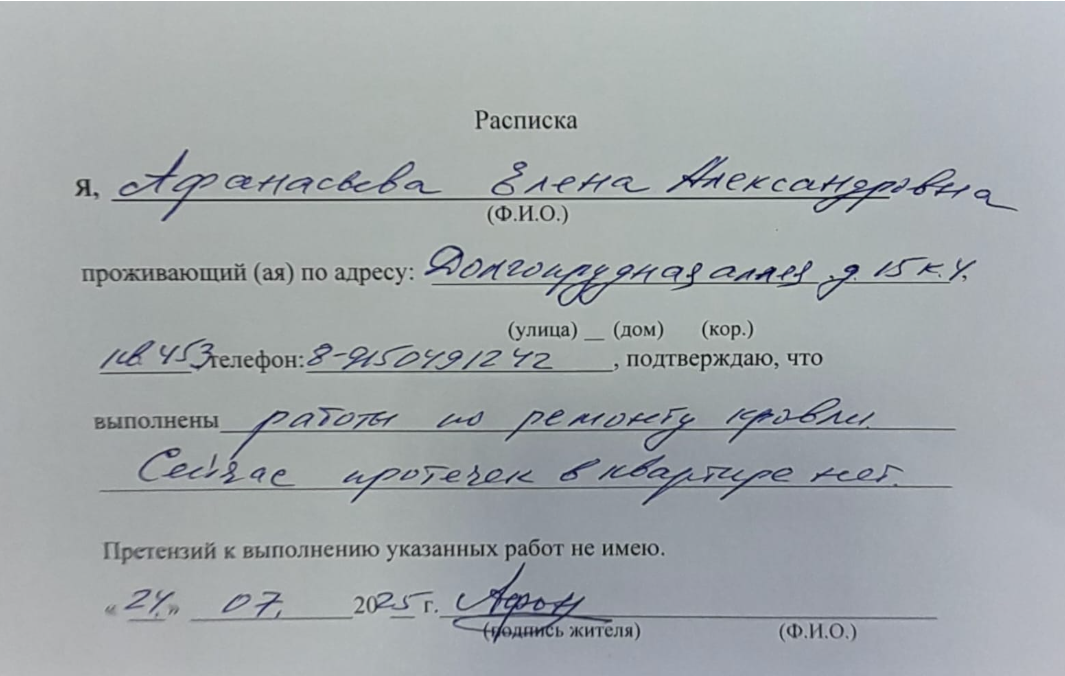 Расписка
Я, Афанасьева Елена Александровна
(Ф.И.О.)
проживающий (ая) по адресу: Долгопрудная аллея д. 15 к. 4.
(улица) __ (дом) (кор.)
кв. 453 телефон: 8-9150491242, подтверждаю, что
выполнены работы по ремонту кровли.
Сейчас протечек в квартире нет.
Претензий к выполнению указанных работ не имею.
«24.» 07. 2025 г. Афан
(подпись жителя) (Ф.И.О.)